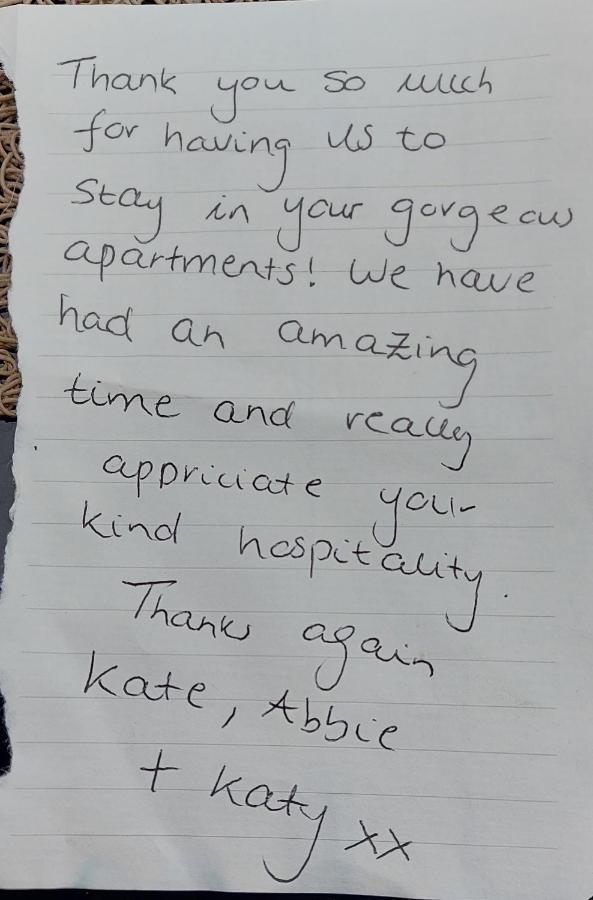 Thank you so much
for having us to
stay in your gorgeous
apartments! We have
had an amazing
time and really
appriciate your
kind hospitality.
Thanks again
Kate, Abbie
+ Katy xx